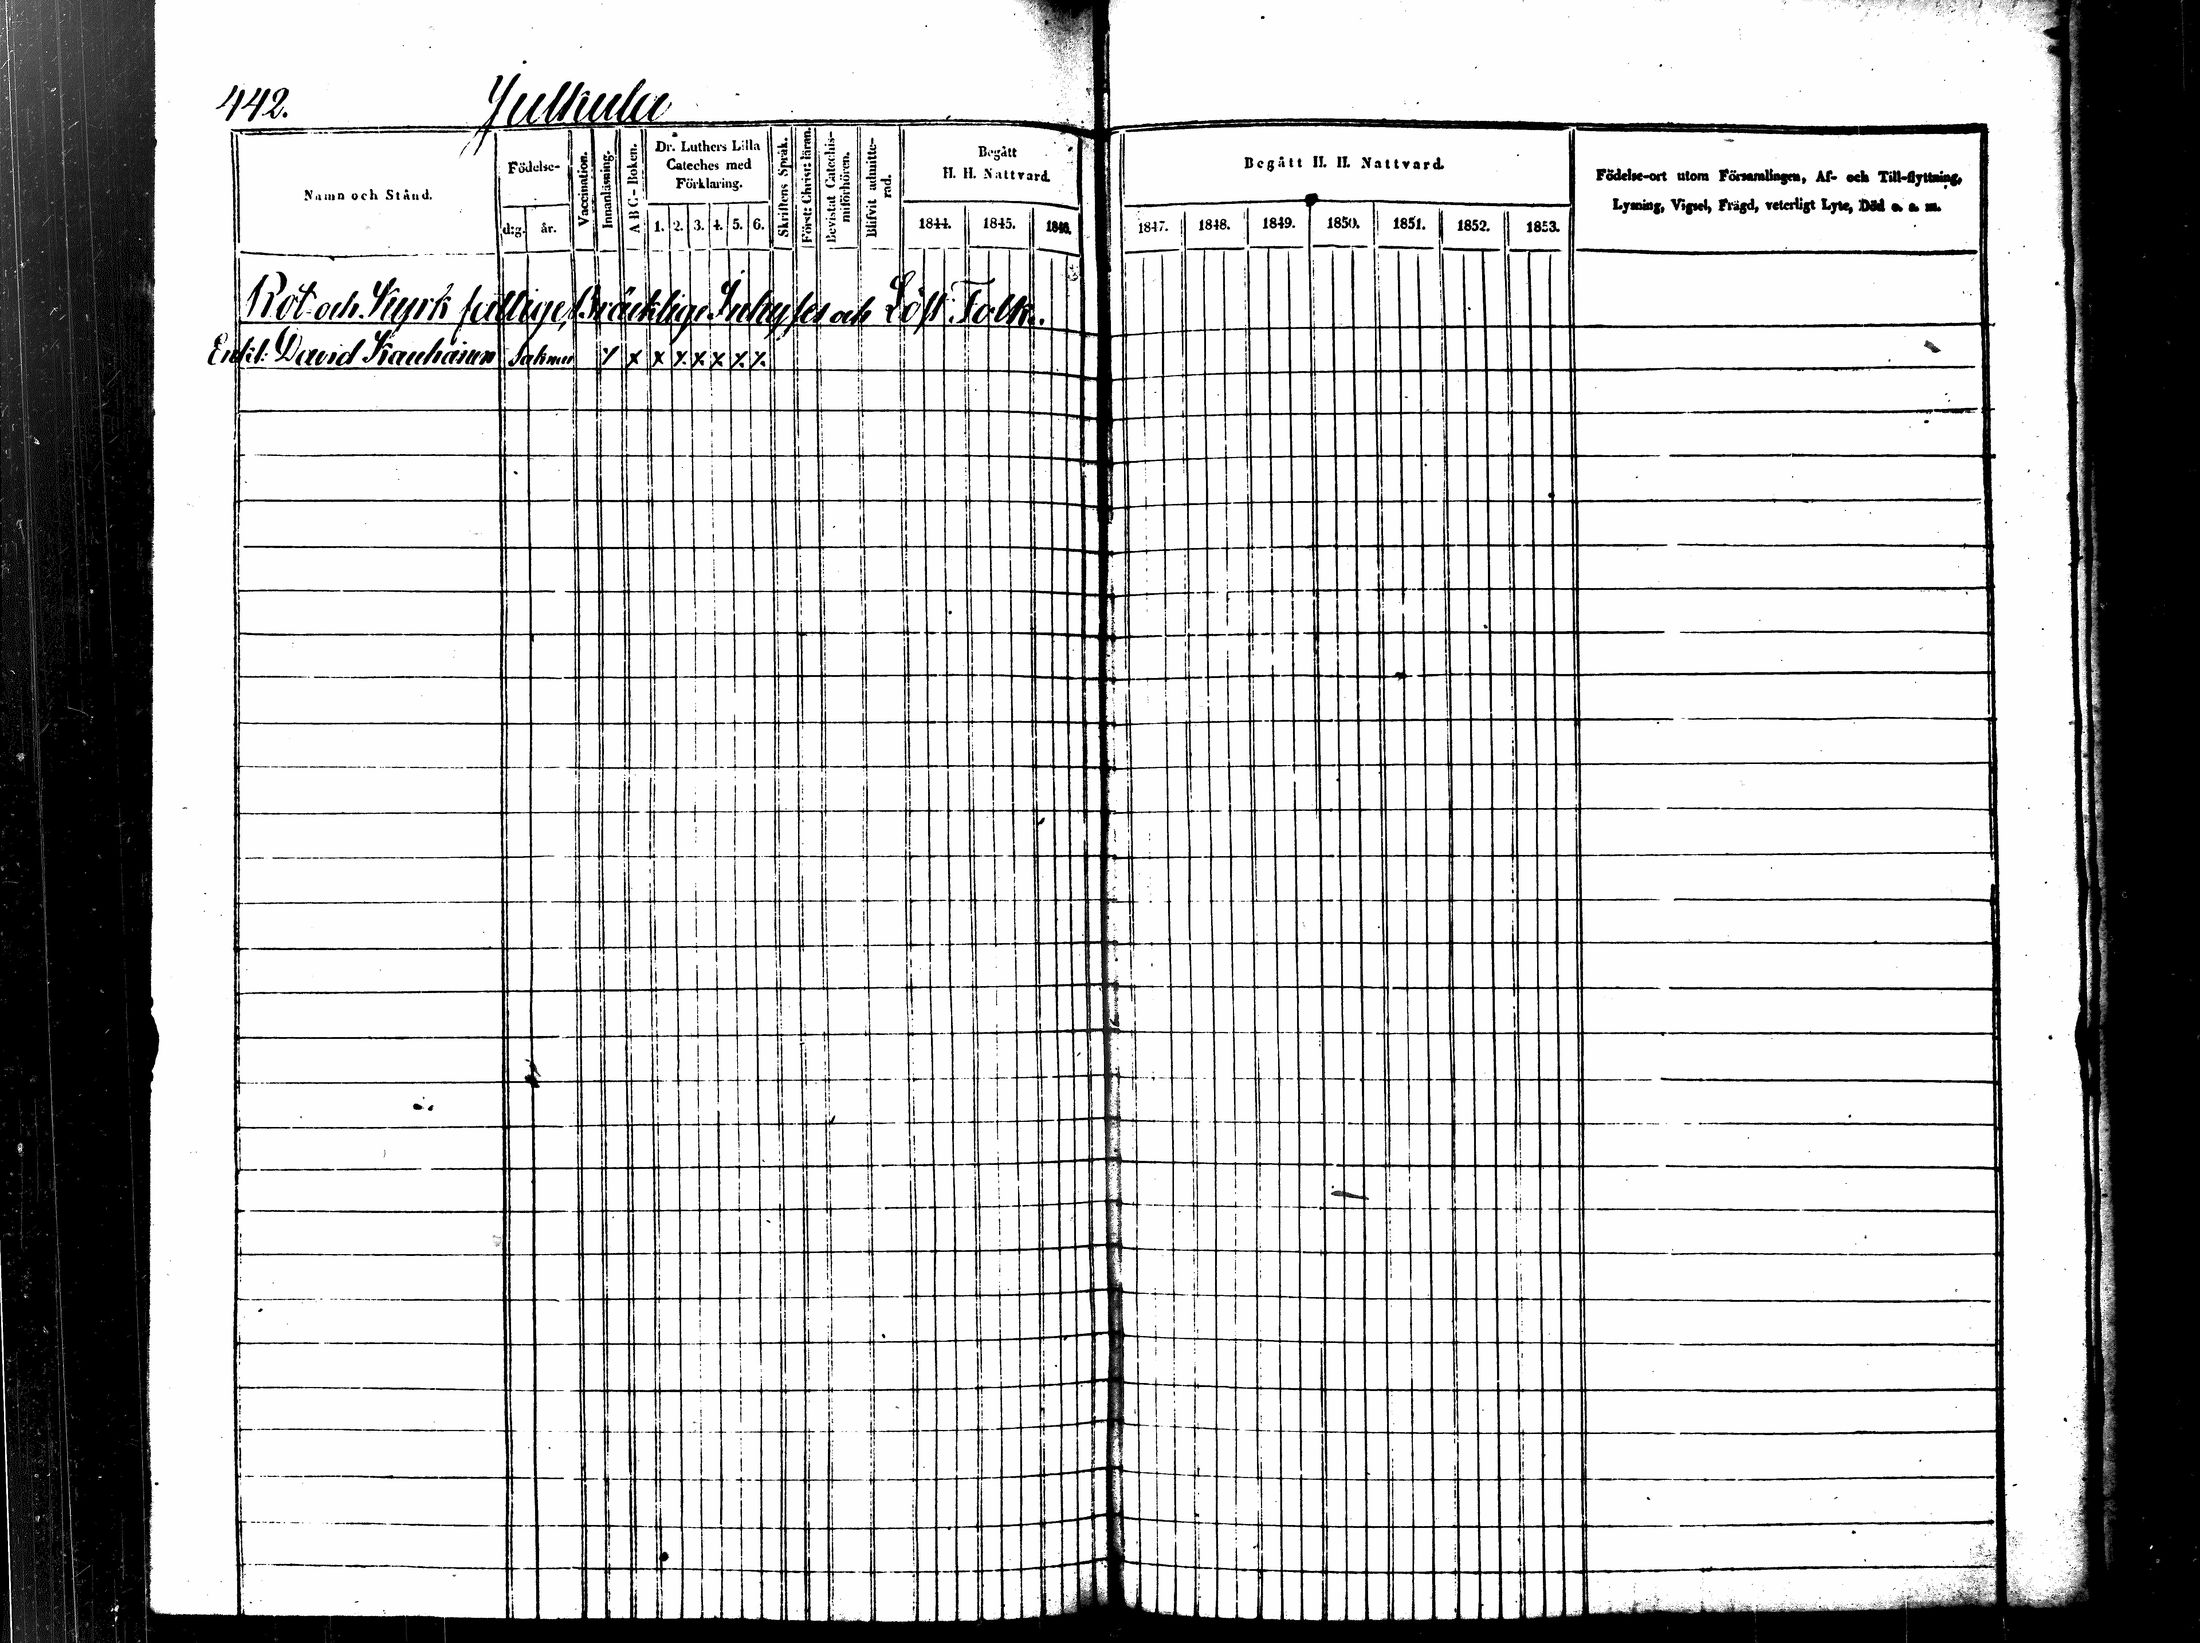 442. Julkula
Namn och Stånd.
Födelse-
d:g. år.
Vaccination.
Innanläsning.
A B C - Boken.
Dr. Luthers Lilla
Cateches med
Förklaring.
1. 2. 3. 4. 5. 6.
Skriftens Språk.
Först: Christ: läran.
Bevistat Catechis-
miförhören.
Blifvit admitte-
rad.
Begått
H. H. Nattvard.
1844. 1845. 1846.
Begått H. H. Nattvard.
1847. 1848. 1849. 1850. 1851. 1852. 1853.
Födelse-ort utom Församlingen, Af- och Till-flyttning,
Lysning, Vigsel, Frägd, veterligt Lyte, Död o. s. m.
Rot- och Kyrk fattige, Bräcklige Inhyses och Löst Folk.
Enkl: David Kauhanen Saknas x x x x x x x x